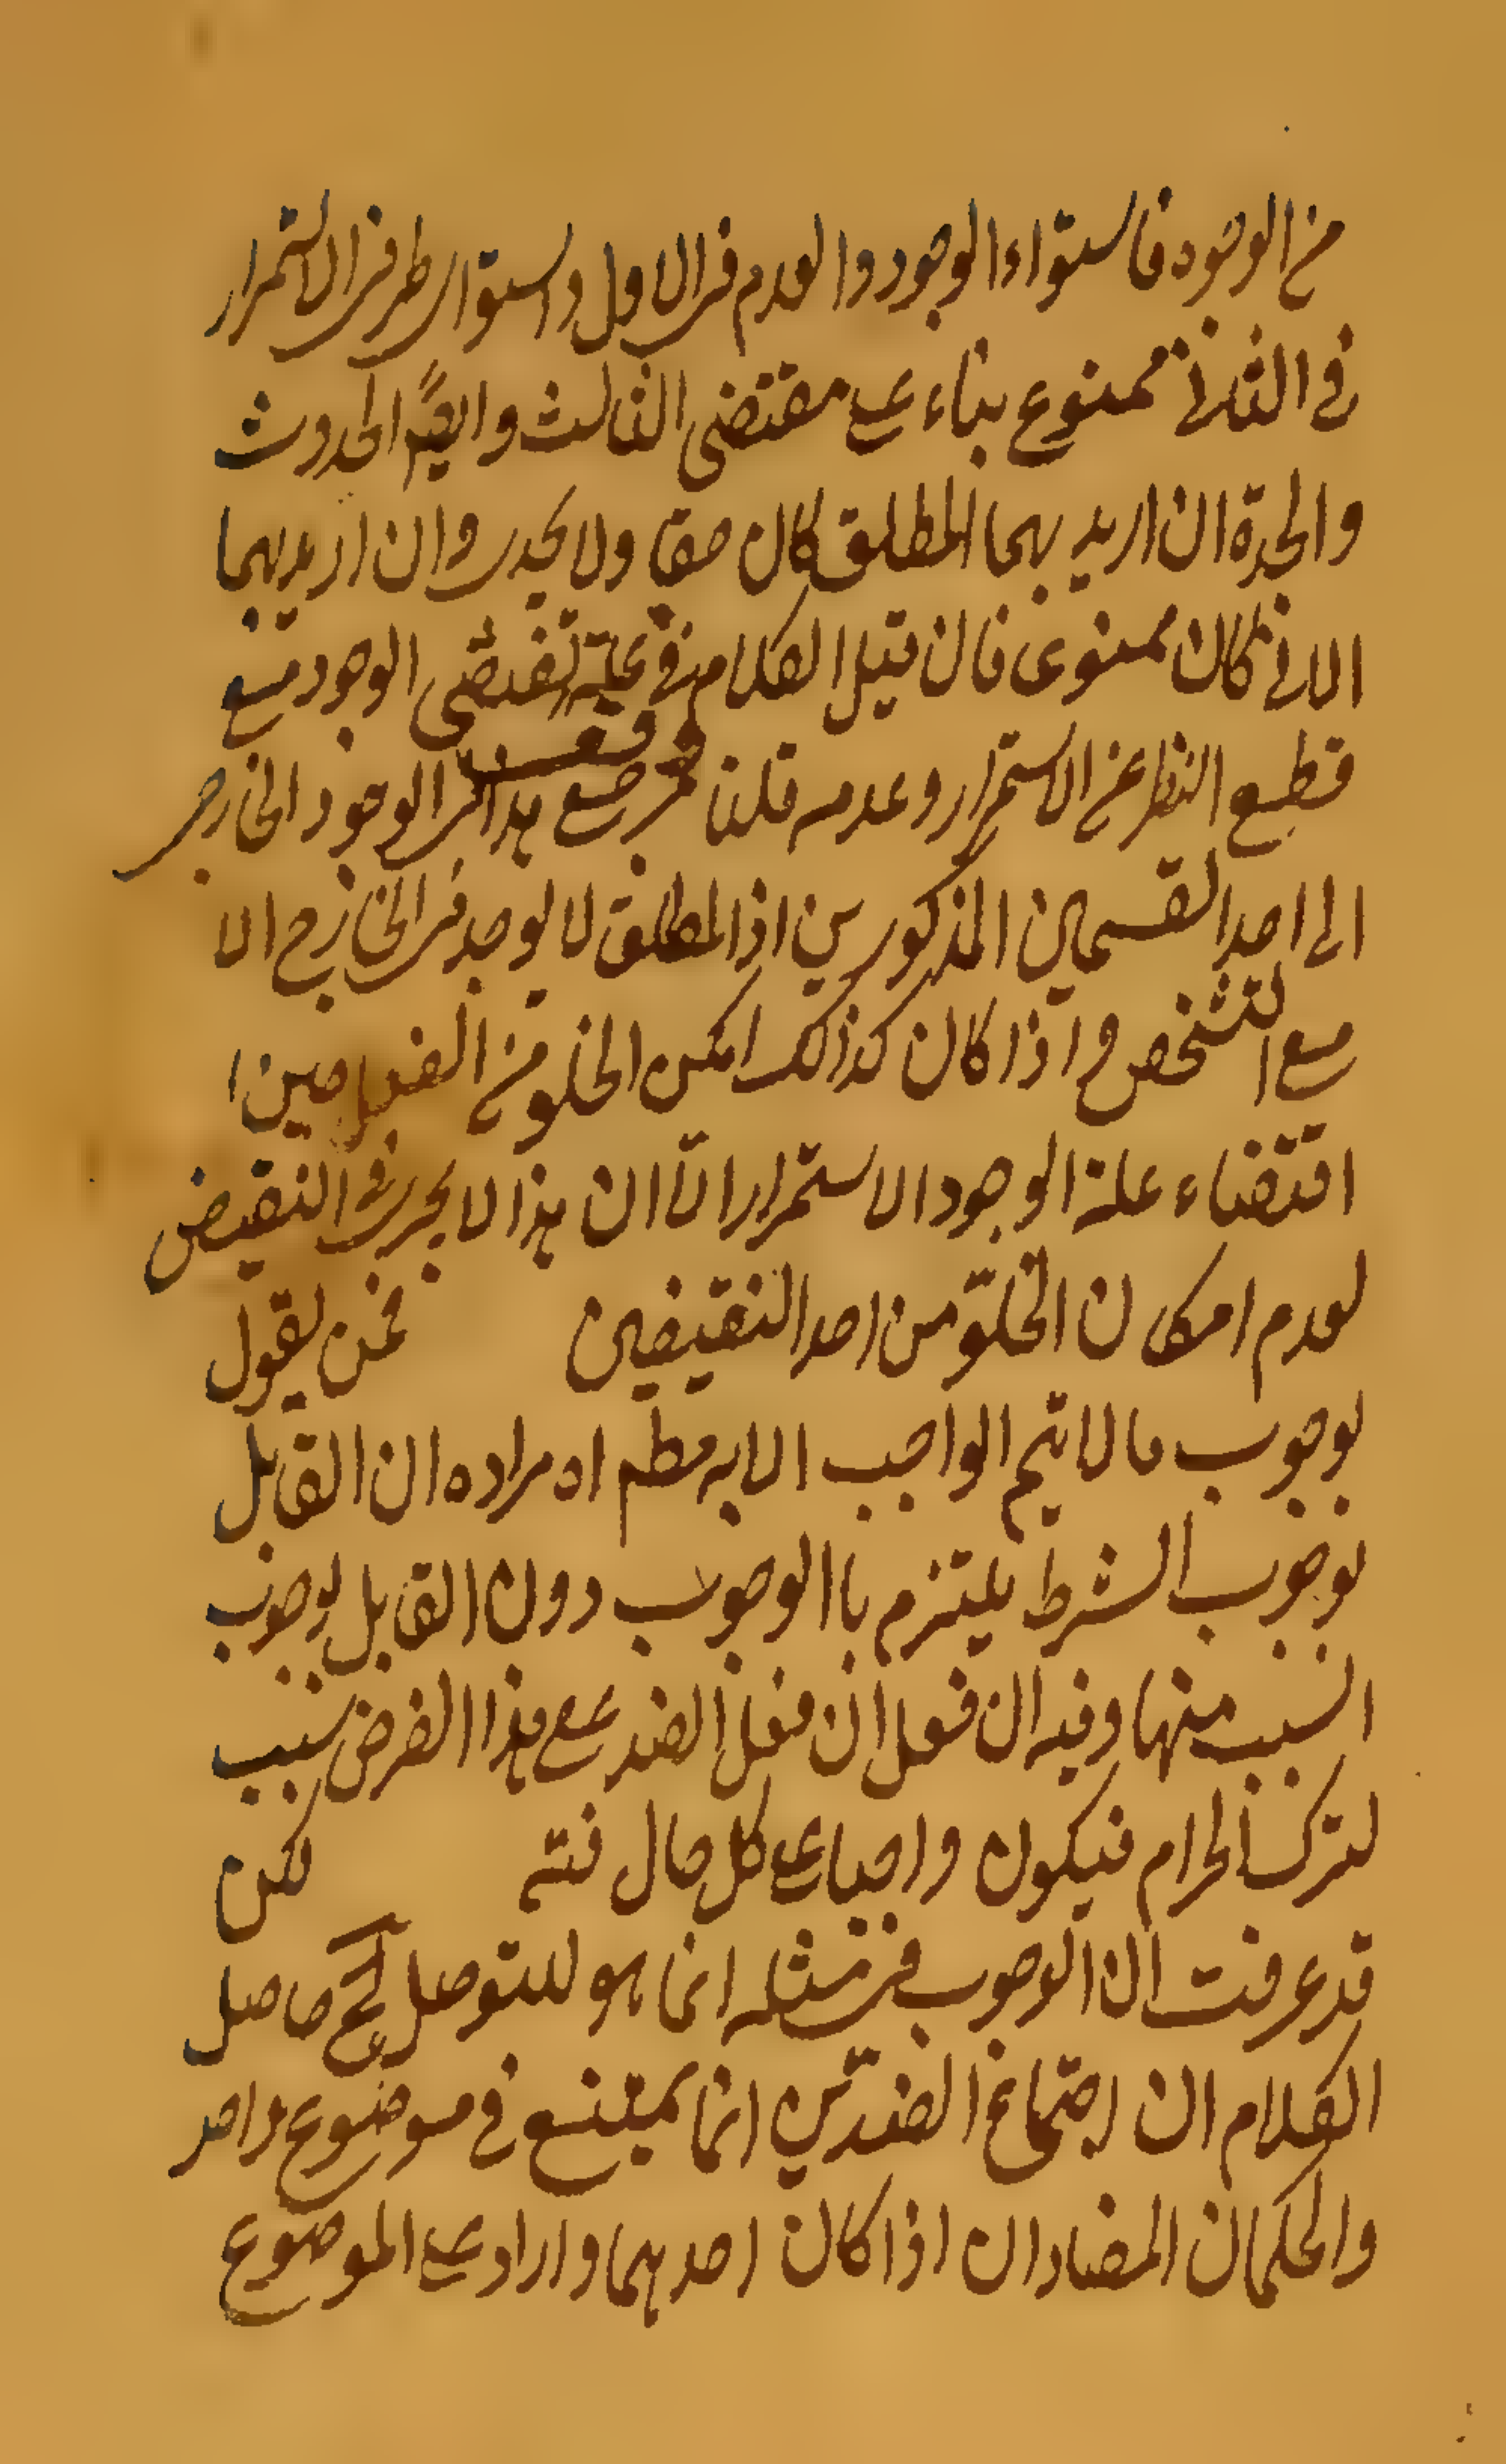 من الوجود فاستواء الوجود والعدم فى الاول واستواء طرفى الاستمرار
فى الثانى ممنوع بناء على مقتضى الثالث وايضً الحدوث
والجدة ان اريد بهما المطلق كان حقا ولا يجدى وان اريد بهما
الانى كان ممنوعى فان قيل الكلام فى علة تقتضى الوجود مع
قطع النظر عن الاستمرار وعدمه قلنا مرجع هذا الوجود الخارجى
الى احد القسمين المذكورين اذ المطلق لا يوجد فى الخارج الا
مع التشخص و اذا كان كذلك امكن الخلو من الضد حين
اقتضاء علة الوجود الاستمرار الّا ان هذا لا يجرى فى النقيض
لعدم امكان الخلوّ من احد النقيضين فمن يقول
بوجوب ما لا يتم الواجب الا به مطم اه مراده ان القائل
بوجوب الشرط يلتزم بالوجوب دون القائل بوجوب
السبب منها وفيه ان فعل ان فعل الضد على هذا الفرض سبب
لترك الحرام فيكون واجبا على كل حال فته لكن
قد عرفت ان الوجوب فى مثله انما هو للتوصل الخ حاصل
الكلام ان اجتماع الضدّين انما يمتنع فى موضوع واحد
والحكمان المضادان اذا كان احدهما وارادى على الموضوع